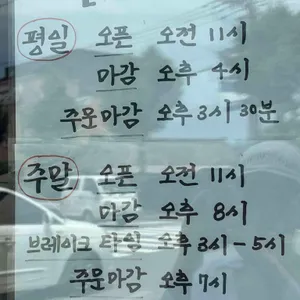 평일 오픈 오전 11시
마감 오후 4시
주문마감 오후 3시 30분
주말 오픈 오전 11시
마감 오후 8시
브레이크 타임 오후 3시-5시
주문마감 오후 7시